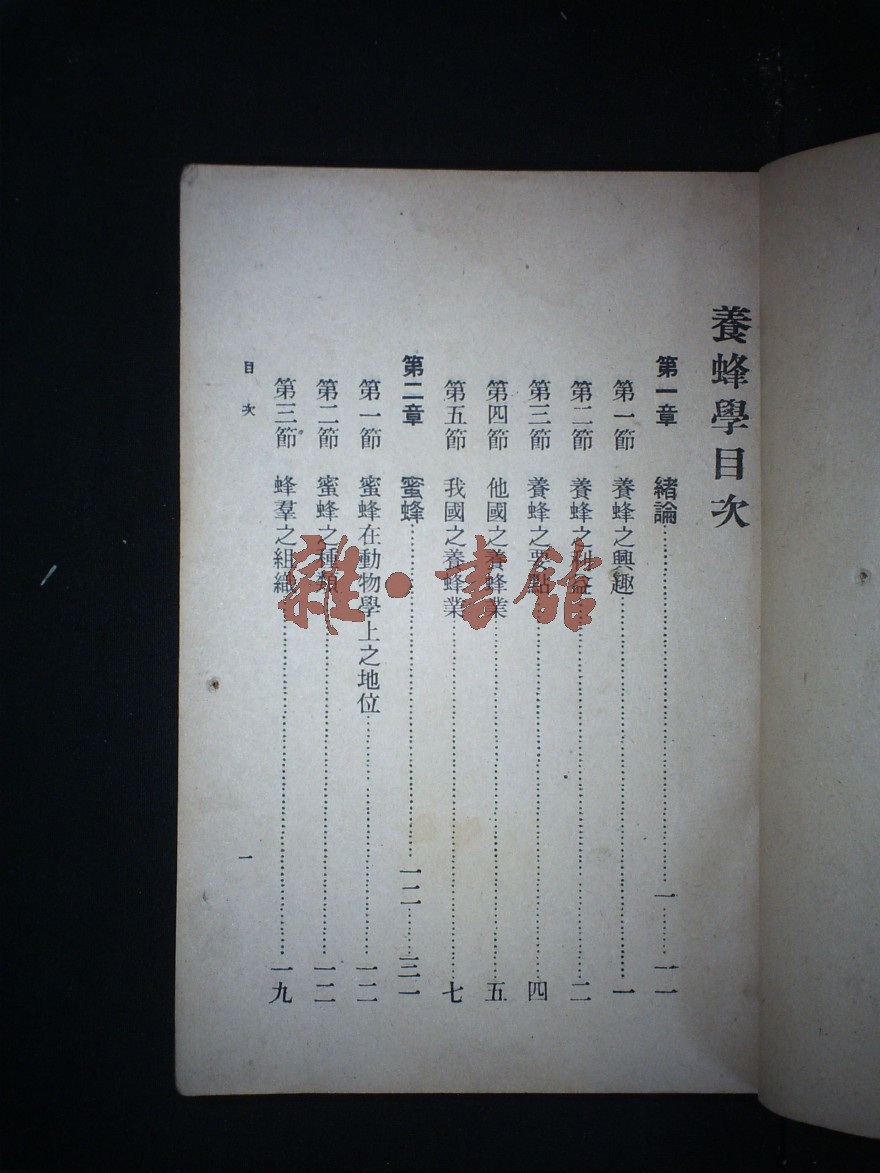 養蜂學目次
第一章 緒論……一……一一
第一節 養蜂之興趣……一
第二節 養蜂之利益……二
第三節 養蜂之要點……四
第四節 他國之養蜂業……五
第五節 我國之養蜂業……七
第二章 蜜蜂……一二……三一
第一節 蜜蜂在動物學上之地位……一二
第二節 蜜蜂之種類……一二
第三節 蜂羣之組織……一九
目次 一
雜·書館